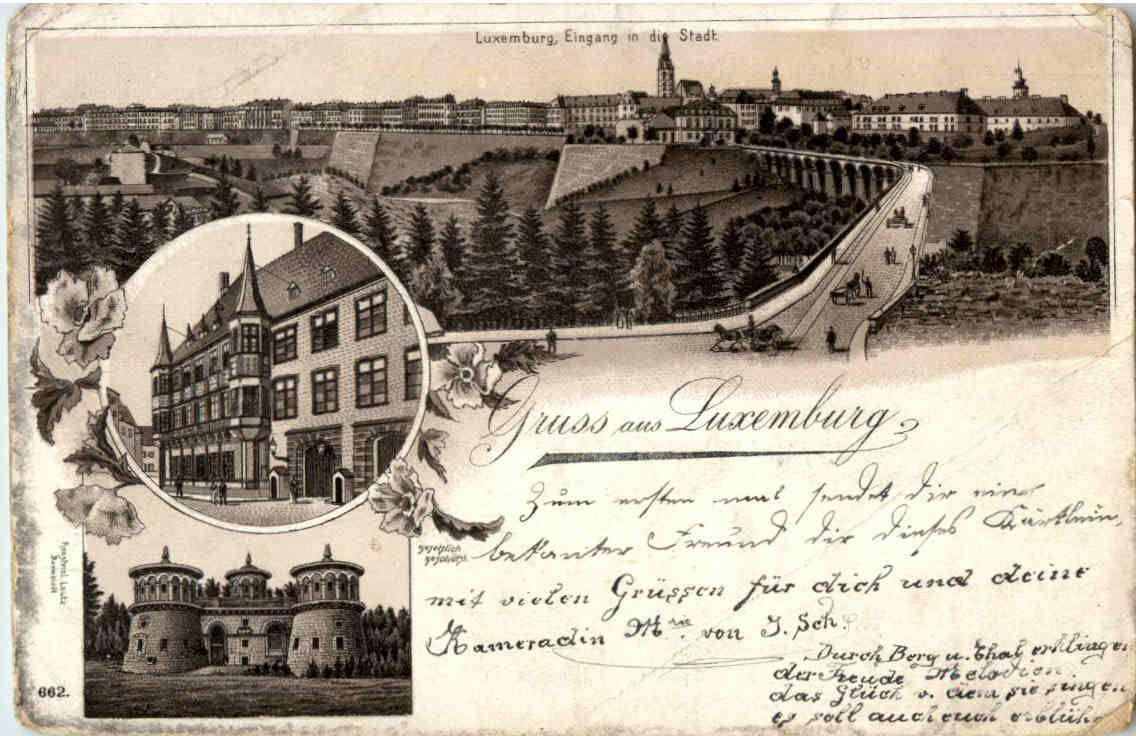 Luxemburg, Eingang in die Stadt.
Gruss aus Luxemburg
gesetzlich
geschützt.
Zum ersten mal sendet dir ein
bekanter Freund dir dieses Kärtlein,
mit vielen Grüssen für dich und deine
Kameradin M von J. Sch.
Durch Berg u. Thal erklingen
der Freude Melodien
das Glück v. dem sie singen
es soll auch euch erblüh
662.